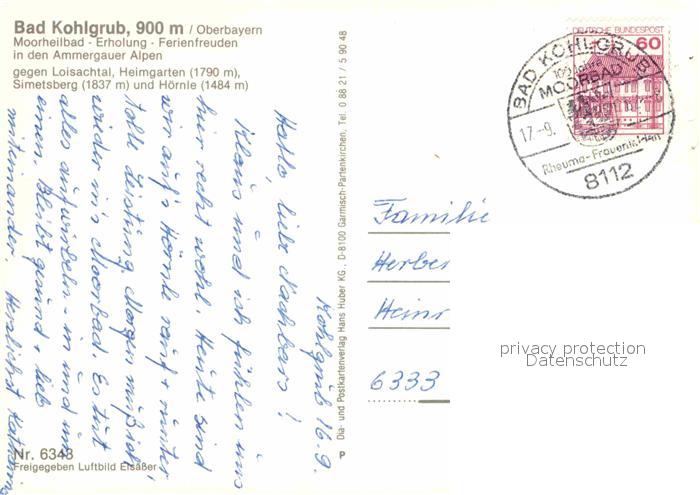 Bad Kohlgrub, 900 m / Oberbayern
Moorheilbad - Erholung - Ferienfreuden
in den Ammergauer Alpen
gegen Loisachtal, Heimgarten (1790 m),
Simetsberg (1837 m) und Hörnle (1484 m)
Kohlgrub 16.9.
Hallo, liebe Nachbars!
Klaus und ich fühlen uns
hier recht wohl. Heute sind
wir auf's Hörnle rauf + runter,
tolle Leistung. Morgen muß ich
wieder in's Moorbad. Es tut
alles aufwirbeln - in und um
einen. Bleibt gesund + lieb
miteinander Herzlichst
Nr. 6348
Freigegeben Luftbild Elsäßer
Dia- und Postkartenverlag Hans Huber KG., D-8100 Garmisch-Partenkirchen, Tel. 0 88 21 / 5 90 48
P
DEUTSCHE BUNDESPOST
60
BAD KOHLGRUB
100 Jahre
MOORBAD
17.-9.
Rheuma-Frauenleiden
8112
Familie
Herber
Heinr
6333
privacy protection
Datenschutz